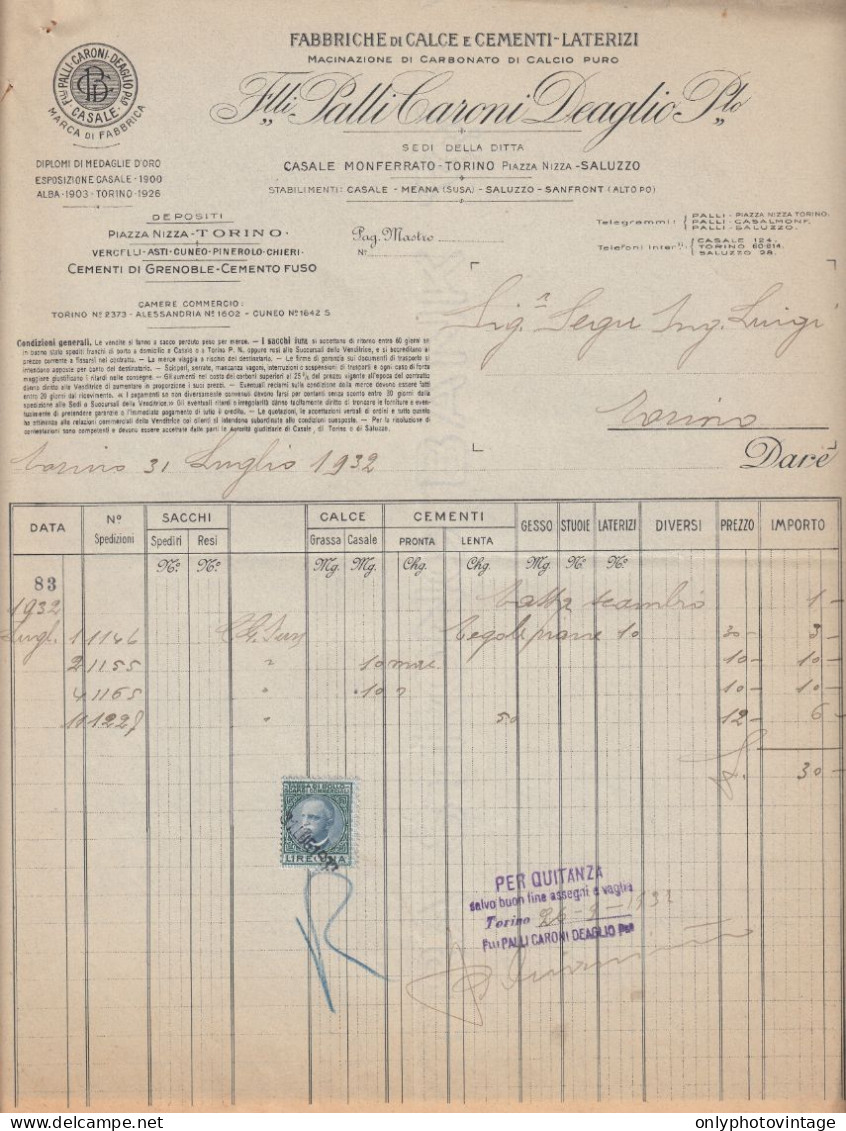 FABBRICHE DI CALCE E CEMENTI-LATERIZI
MACINAZIONE DI CARBONATO DI CALCIO PURO
F.lli Palli Caroni Deaglio P.lo
F.lli PALLI·CARONI·DEAGLIO P.lo
CASALE
MARCA DI FABBRICA
SEDI DELLA DITTA
CASALE MONFERRATO-TORINO PIAZZA NIZZA-SALUZZO
STABILIMENTI: CASALE - MEANA (SUSA) - SALUZZO - SANFRONT (ALTO PO)
DIPLOMI DI MEDAGLIE D'ORO
ESPOSIZIONE CASALE - 1900
ALBA-1903 - TORINO-1926
DEPOSITI
PIAZZA NIZZA-TORINO-
VERCELLI-ASTI-CUNEO-PINEROLO-CHIERI-
CEMENTI DI GRENOBLE-CEMENTO FUSO
Pag. Mastro
N.o
Telegrammi: PALLI - PIAZZA NIZZA TORINO.
PALLI - CASALMONF.
PALLI - SALUZZO.
Telefoni inter.li CASALE 124.
TORINO 60-614.
SALUZZO 28.
CAMERE COMMERCIO:
TORINO No 2373 - ALESSANDRIA No 1602 - CUNEO No 1642 S
Sig.r Segre Ing. Luigi
Torino
Condizioni generali. Le vendite si fanno a sacco perduto peso per merce. — I sacchi iuta si accettano di ritorno entro 60 giorni se
in buono stato spediti franchi di porto a domicilio a Casale o a Torino P. N. oppure resi alle Succursali della Venditrice, e si accreditano al
prezzo corrente a fissarsi nel contratto. — La merce viaggia a rischio del destinatario. — Le firme di garanzia sui documenti di trasporto si
intendono apposte per conto del destinatario. — Scioperi, serrate, mancanza vagoni, interruzioni o sospensioni di trasporti e ogni caso di forza
maggiore giustificano i ritardi nelle consegne. — Gli aumenti nel costo dei carboni superiori al 25% del prezzo vigente all'epoca del contratto
danno diritto alle Venditrice di aumentare in proporzione i suoi prezzi. — Eventuali reclami sulle condizioni della merce devono essere fatti
entro 20 giorni dal ricevimento. — I pagamenti se non diversamente convenuti devono farsi per contanti senza sconto entro 30 giorni dalla
spedizione alle Sedi o Succursali della Venditrice. — Gli eventuali ritardi o irregolarità danno tacitamente diritto di troncare le forniture e even-
tualmente di pretendere garanzie o l'immediato pagamento di tutto il credito. — Le quotazioni, le accettazioni verbali di ordini e tutto questo
ha attinenza alle relazioni commerciali della Venditrice coi clienti si intendono subordinate alle condizioni suesposte. — Per la risoluzione di
contestazioni sono competenti e devono essere accettate dalle parti le autorità giudiziarie di Casale, di Torino o di Saluzzo.
Torino 31 Luglio 1932
Dare
DATA No Spedizioni SACCHI Spediti Resi CALCE Grassa Casale CEMENTI PRONTA LENTA GESSO STUOIE LATERIZI DIVERSI PREZZO IMPORTO
No. No. Mg. Mg. Chg. Chg. Mg. No. No.
83
1932 Tassa scambio 1 -
Lugl. 1 1146 Tegole piane 10 30 - 3 -
2 1155 " 10 10 - 10 -
4 1165 " 10 " 10 - 10 -
11 1227 " 50 12 - 6 -
30 -
TASSA DI BOLLO
LIRE UNA
PER QUITANZA
salvo buon fine assegni e vaglia
Torino 26-9-1932
F.lli PALLI CARONI DEAGLIO P.lo
onlyphotovintage